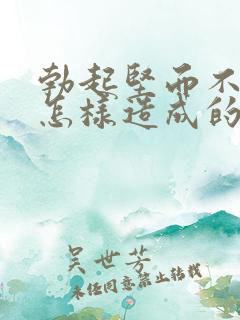 勃起坚而不
怎样造成的
吴世芳
未经同意禁止转载